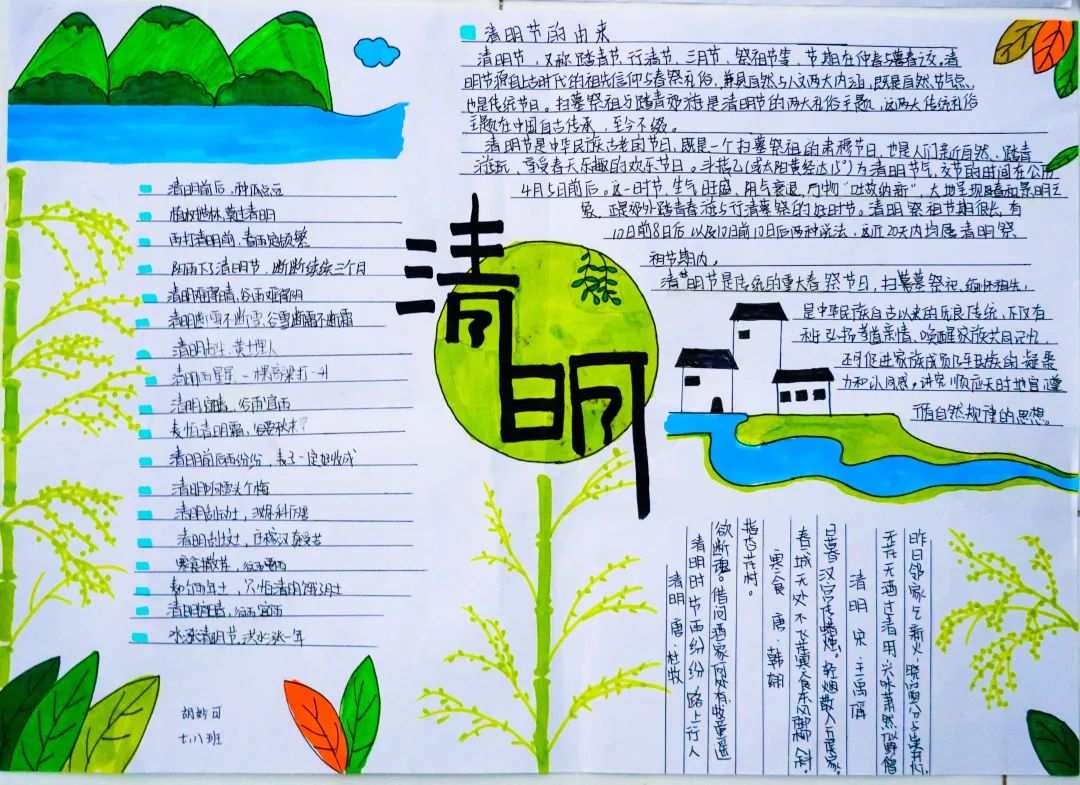 清明节的由来
清明节，又称踏青节、行清节、三月节、祭祖节等，节期在仲春与暮春之交。清
明节源自上古时代的祖先信仰与春祭礼俗，兼具自然与人文两大内涵，既是自然节气点，
也是传统节日。扫墓祭祖与踏青郊游是清明节的两大礼俗主题，这两大传统礼俗
主题在中国自古传承，至今不辍。
清明节是中华民族古老的节日，既是一个扫墓祭祖的肃穆节日，也是人们亲近自然、踏青
游玩、享受春天乐趣的欢乐节日。斗指乙(或太阳黄经达15°)为清明节气，交节的时间在公历
4月5日前后。这一时节，生气旺盛、阴气衰退，万物“吐故纳新”，大地呈现春和景明之
象，正是郊外踏青春游与行清墓祭的好时节。清明祭祖节期很长，有
10日前8日后以及10日前10日后两种说法，这近20天内均属清明祭
祖节期内。
清明节是传统的重大春祭节日，扫墓祭祀、缅怀祖先，
是中华民族自古以来的优良传统，不仅有
利于弘扬孝道亲情、唤醒家族共同记忆，
还可促进家族成员乃至民族的凝聚
力和认同感。讲究顺应天时地宜遵
循自然规律的思想。
清明
清明前后，种瓜点豆
植树造林，莫过清明
雨打清明前，春雨定频繁
阴雨下了清明节，断断续续三个月
清明难得晴，谷雨难得阴
清明断雪不断雪，谷雪断霜不断霜
清明雨星星，一棵高粱打一升
清明宜晴，谷雨宜雨
麦怕清明霜，谷要秋来
清明前后雨纷纷，麦子一定好收成
清明宜晴，谷雨宜雨
水涨清明节，洪水涨一年
胡妙可
七、八班
昨日邻家乞新火，晓窗分与读书灯。
无花无酒过清明，兴味萧然似野僧
清明 宋·王禹偁
日暮汉宫传蜡烛，轻烟散入五侯家。
春城无处不飞花，寒食东风御柳斜。
寒食 唐·韩翃
指杏花村。
欲断魂。借问酒家何处有，牧童遥
清明时节雨纷纷，路上行人
清明 唐·杜牧